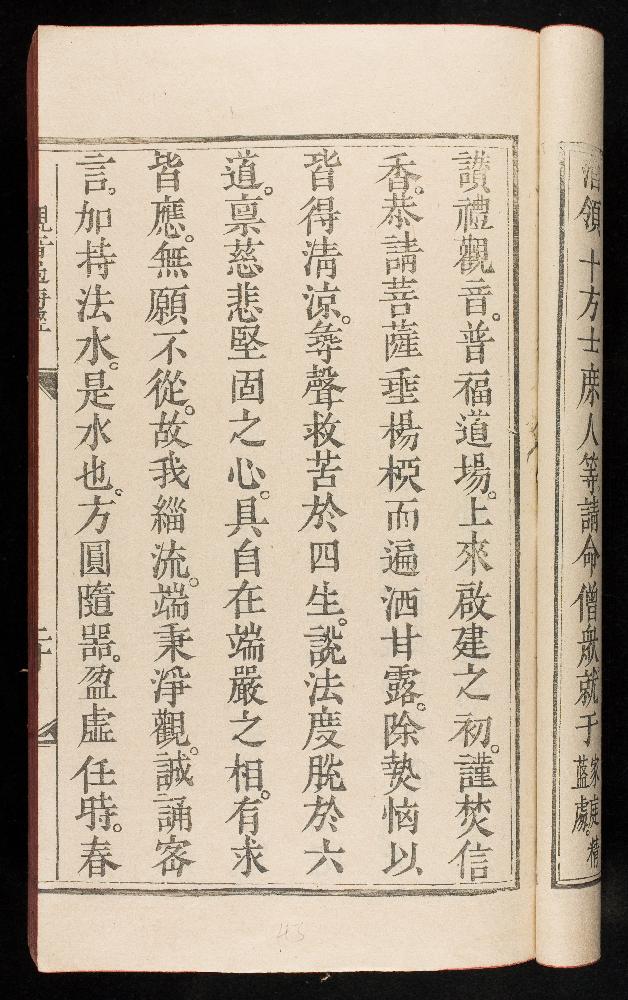 沿領 十方士庶人等請命僧衆就于家庭精藍處。
讃禮觀音。普福道場。上來啟建之初。謹焚信
香。恭請菩薩垂楊柳而遍洒甘露。除熱惱以
皆得清涼。尋聲救苦於四生。説法度脱於六
道。禀慈悲堅固之心。具自在端嚴之相。有求
皆應。無願不從。故我緇流。端秉淨觀。誠誦密
言。加持法水。是水也。方圓隨器。盈虛任時。春
43